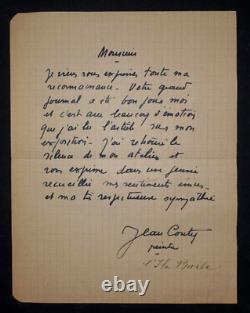 Monsieur
Je veux vous exprimer toute ma
reconnaissance. Votre grand
journal a été bon pour moi
et c'est avec beaucoup d'émotion
que j'ai lu l'article sur mon
exposition. J'ai retrouvé le
silence de mon atelier et
vous exprime dans une
recueillie mes sentiments
et ma très respectueuse sympathie
Jean Couty
peintre
l'Ile Barbe